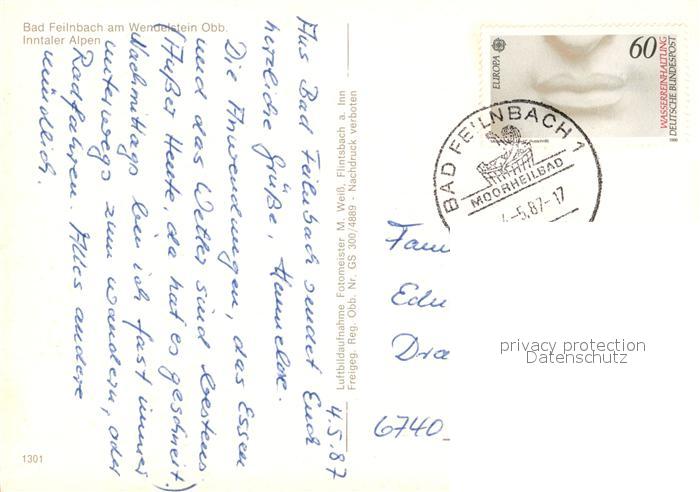 Bad Feilnbach am Wendelstein Obb.
Inntaler Alpen
4.5.87
Aus Bad Feilnbach sendet Euch
herzliche Grüße, Hannelore.
Die Anwendungen, das Essen
und das Wetter sind bestens.
(Außer Heute, da hat es geschneit.)
Nachmittags bin ich fast immer
unterwegs zum wandern, oder
Radfahren. Alles andere
mündlich.
1301
Luftbildaufnahme Fotomeister M. Weiß, Flintsbach a. Inn
Freigeg. Reg. Obb. Nr. GS 300/4889 - Nachdruck verboten
EUROPA
60
WASSERREINHALTUNG
DEUTSCHE BUNDESPOST
BAD FEILNBACH 1
MOORHEILBAD
4-5.87-17
Fam
Edu
Dra
6740
privacy protection
Datenschutz